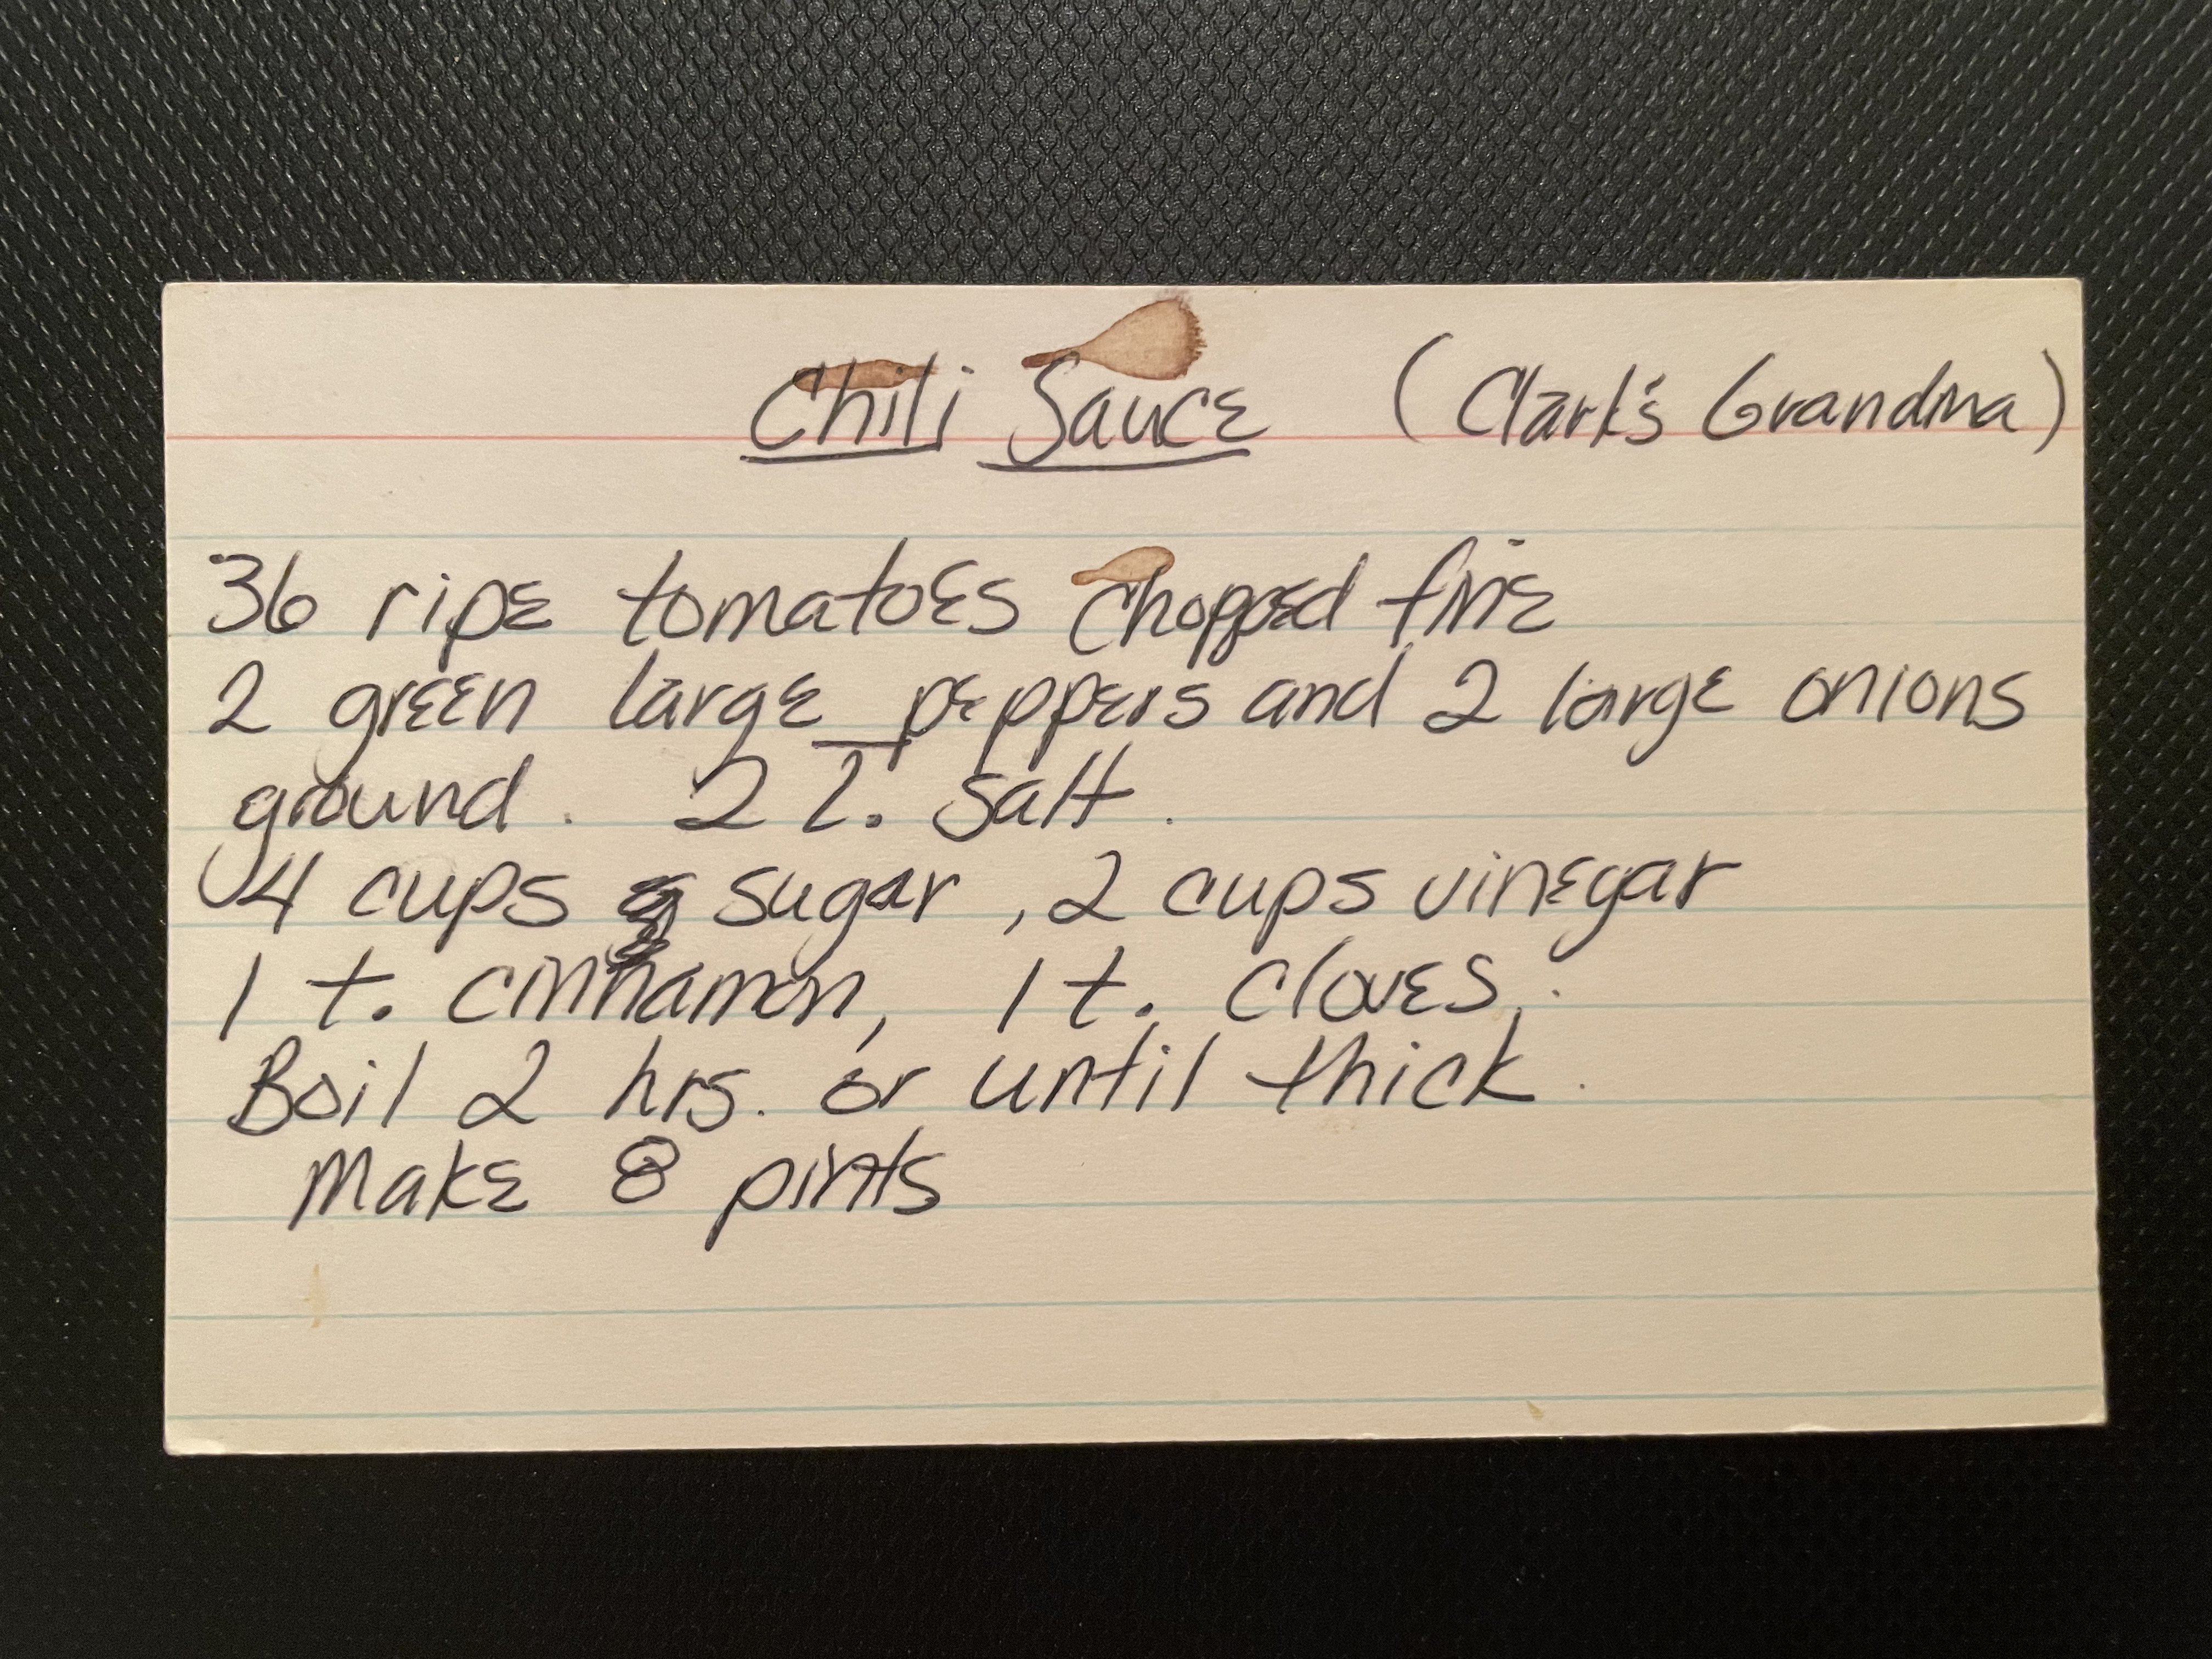 Chili Sauce (Clark's Grandma)
36 ripe tomatoes chopped fine
2 green large peppers and 2 large onions
ground. 2 T. salt.
4 cups sugar, 2 cups vinegar
1 t. cinnamon, 1 t. cloves.
Boil 2 hrs. or until thick.
Make 8 pints